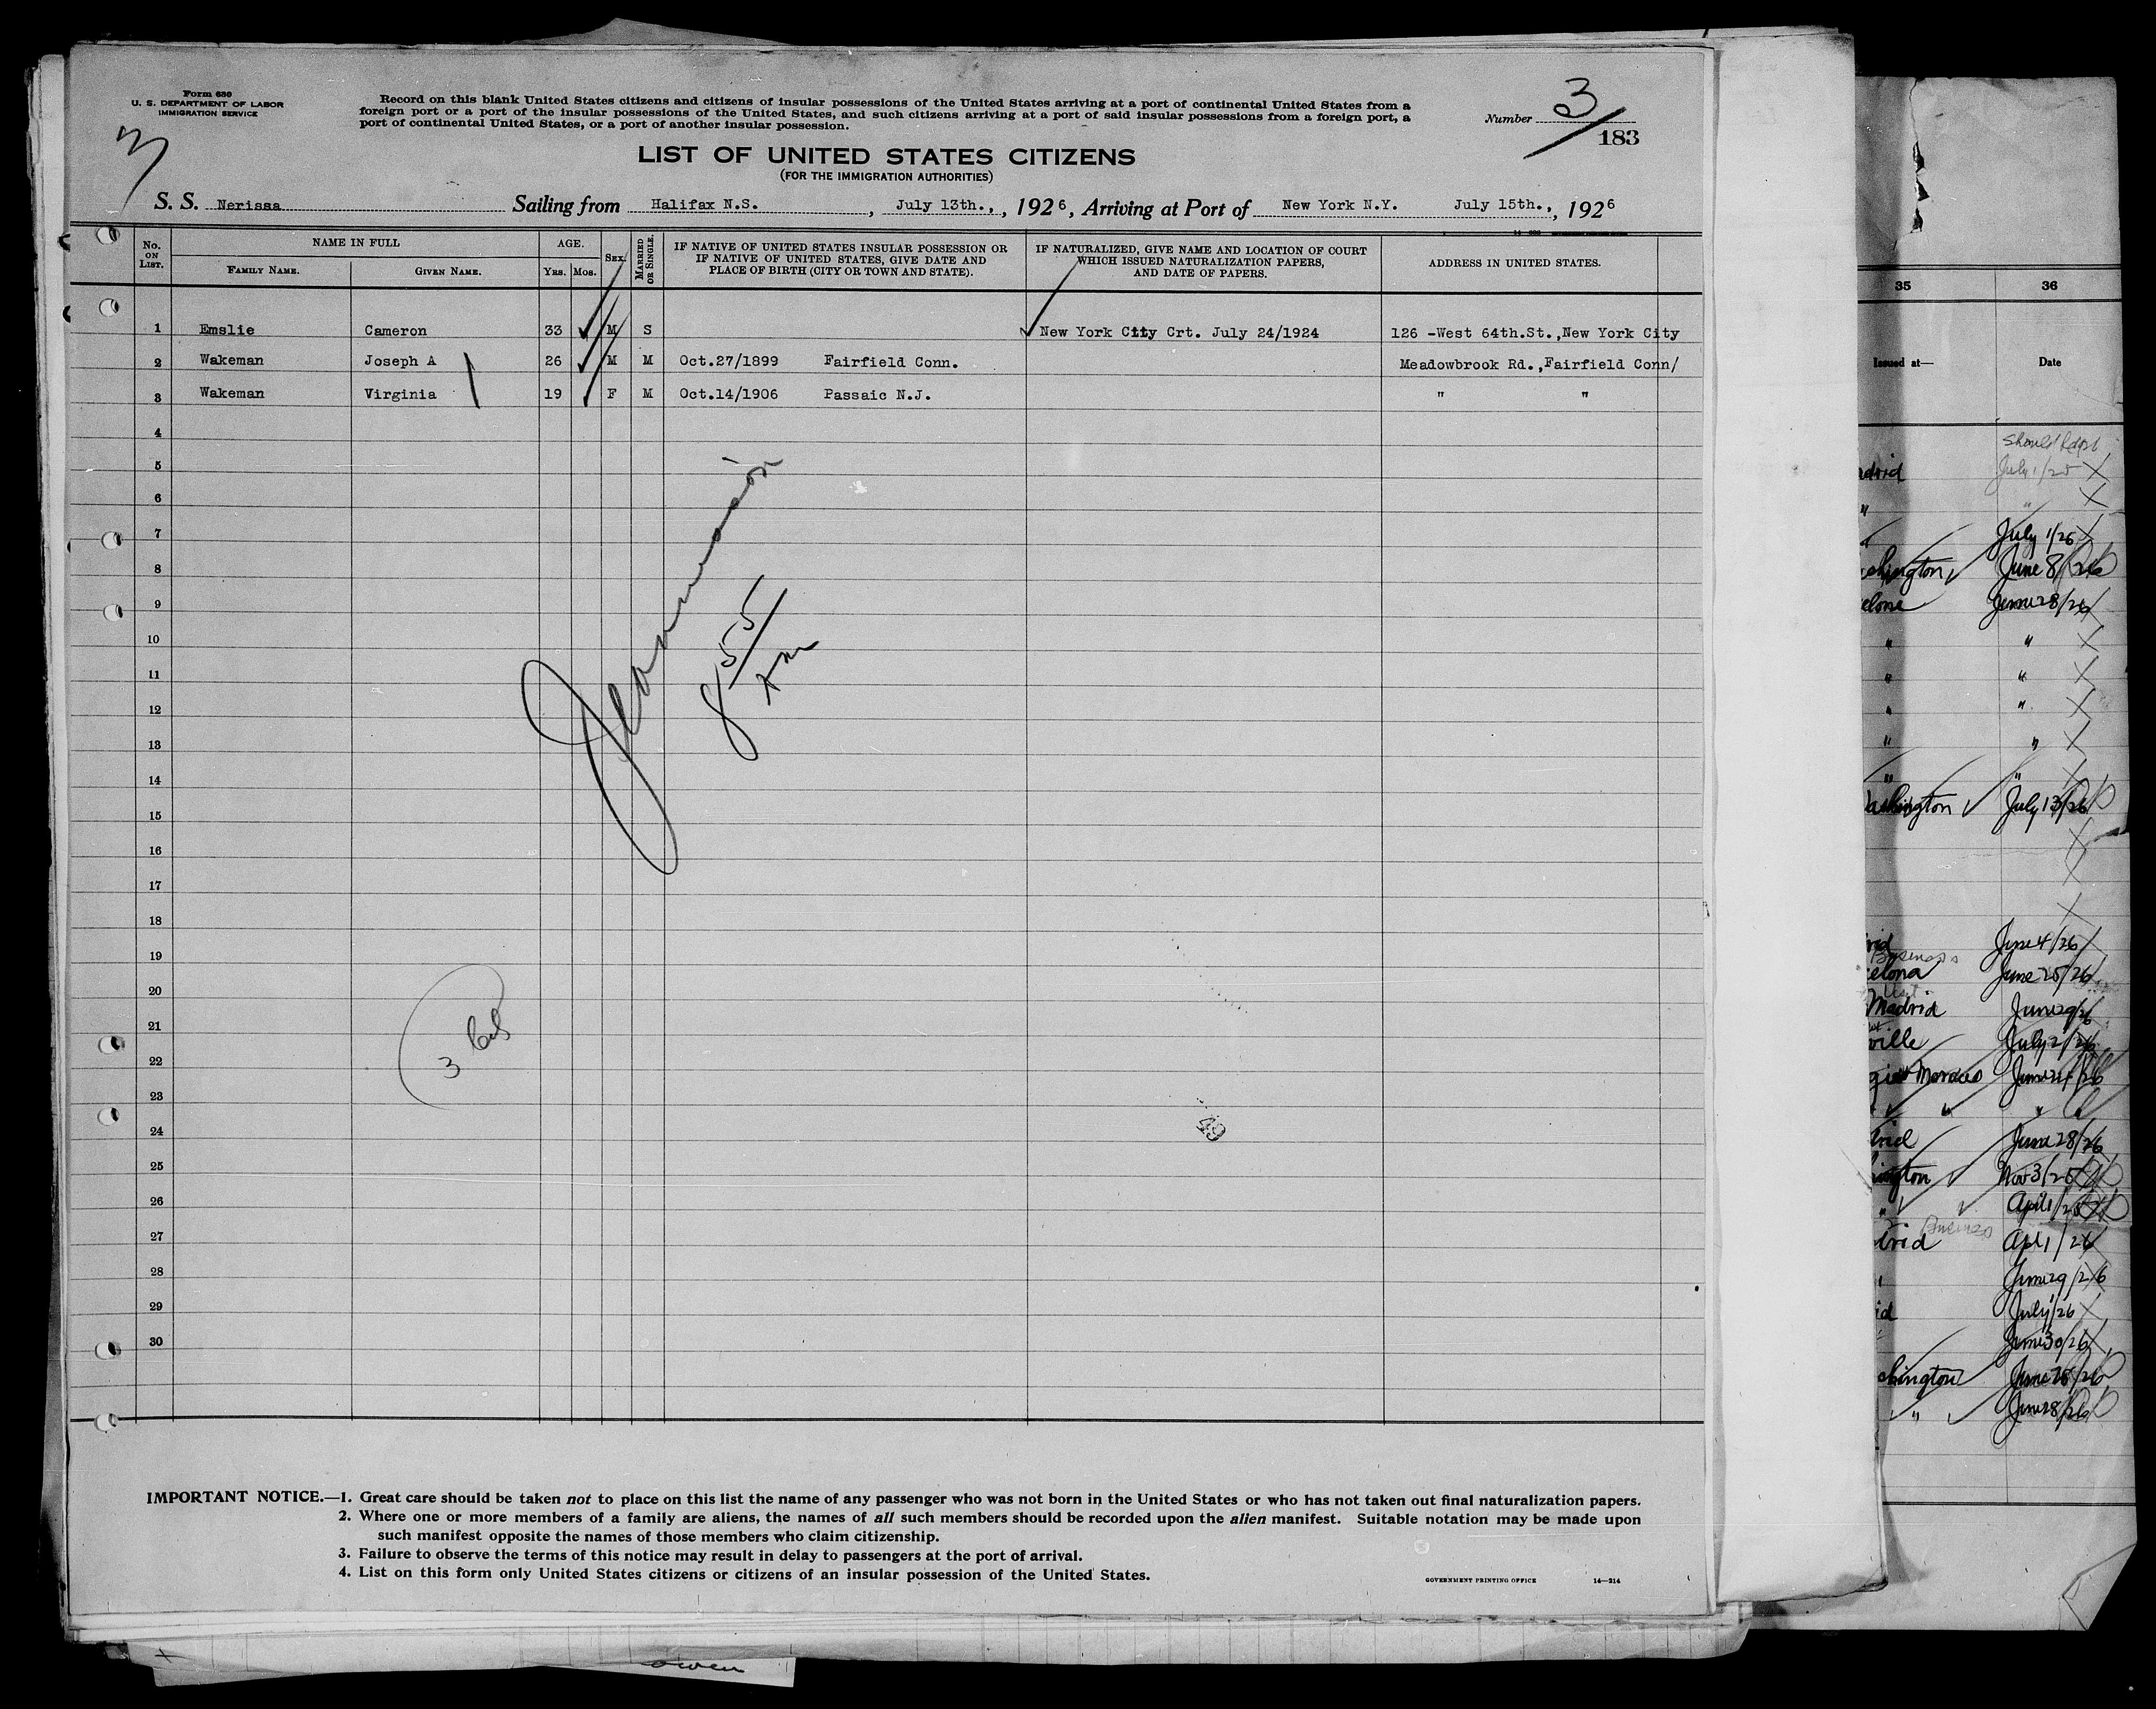 Form 630
U. S. DEPARTMENT OF LABOR
IMMIGRATION SERVICE
3
Record on this blank United States citizens and citizens of insular possessions of the United States arriving at a port of continental United States from a
foreign port or a port of the insular possessions of the United States, and such citizens arriving at a port of said insular possessions from a foreign port, a
port of continental United States, or a port of another insular possession.
Number 3
183
LIST OF UNITED STATES CITIZENS
(FOR THE IMMIGRATION AUTHORITIES)
S. S. Nerissa Sailing from Halifax N.S. , July 13th., , 1926, Arriving at Port of New York N.Y. July 15th., , 1926
No. ON LIST. NAME IN FULL FAMILY NAME. GIVEN NAME. AGE. YRS. MOS. SEX. MARRIED OR SINGLE. IF NATIVE OF UNITED STATES INSULAR POSSESSION OR IF NATIVE OF UNITED STATES, GIVE DATE AND PLACE OF BIRTH (CITY OR TOWN AND STATE). IF NATURALIZED, GIVE NAME AND LOCATION OF COURT WHICH ISSUED NATURALIZATION PAPERS, AND DATE OF PAPERS. ADDRESS IN UNITED STATES.
1 Emslie Cameron 33 M S New York City Crt. July 24/1924 126 -West 64th.St.,New York City
2 Wakeman Joseph A 26 M M Oct.27/1899 Fairfield Conn. Meadowbrook Rd.,Fairfield Conn/
3 Wakeman Virginia 19 F M Oct.14/1906 Passaic N.J. " "
4
5
6
7
8
9
10
11
12
13
14
15
16
17
18
19
20
21
22
23
24
25
26
27
28
29
30
855
Am
3
49
IMPORTANT NOTICE.—1. Great care should be taken not to place on this list the name of any passenger who was not born in the United States or who has not taken out final naturalization papers.
2. Where one or more members of a family are aliens, the names of all such members should be recorded upon the alien manifest. Suitable notation may be made upon
such manifest opposite the names of those members who claim citizenship.
3. Failure to observe the terms of this notice may result in delay to passengers at the port of arrival.
4. List on this form only United States citizens or citizens of an insular possession of the United States.
GOVERNMENT PRINTING OFFICE 14—214
owen
35 36
Issued at— Date
July 1/25
"
July 1/26
June 8/26
June 28/26
" "
" "
" "
" "
" "
July 13/26
June 4/26
Business
June 25/26
Madrid June 29/26
July 2/26
June 24/26
" "
June 28/26
Nov 3/25
" April 1/25
Business
Apl 1/26
June 29/26
July 1/26
June 30/26
June 28/26
" June 28/26